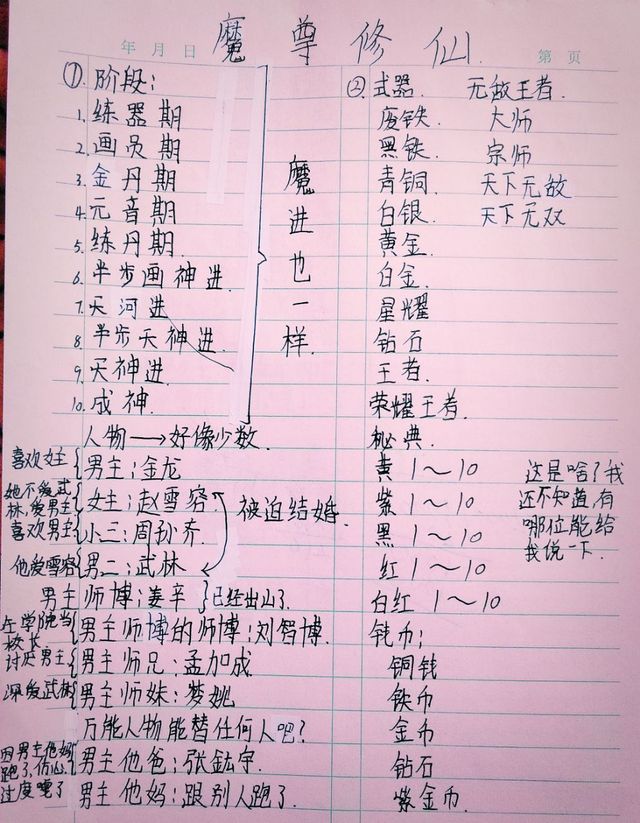 魔尊修仙
年 月 日
第 页
①阶段:
1.练器期
2.画员期
3.金丹期
4.元音期
5.练丹期
6.半步画神进
7.天河进
8.半步天神进.
9.天神进
10.成神.
魔进也一样.
人物→好像少数.
喜欢女主{男主:金龙
她不爱武林,爱男主{女主:赵雪容
喜欢男主{小三:周孙乔
他爱雪容{男二:武林
被迫结婚.
男主师博:姜辛}已经出山了.
在学院当校长{男主师博的师博:刘智博.
讨厌男主{男主师兄:孟加成
深爱武林{男主师妹:梦姚
万能人物能替任何人吧?
因男主他妈跑了,伤心过度嘎了{男主他爸:张鈜宇.
男主他妈:跟别人跑了.
②.式器.
废铁.
黑铁.
青铜.
白银.
黄金.
白金.
星耀
钻石
王者.
荣耀王者.
无敌王者.
大师
宗师
天下无敌
天下无双
秘典.
黄1~10
紫1~10
黑1~10
红1~10
白红1~10
这是啥?我
还不知道,有
哪位能给
我说一下.
钱币:
铜钱
铁币
金币
钻石
紫金币.